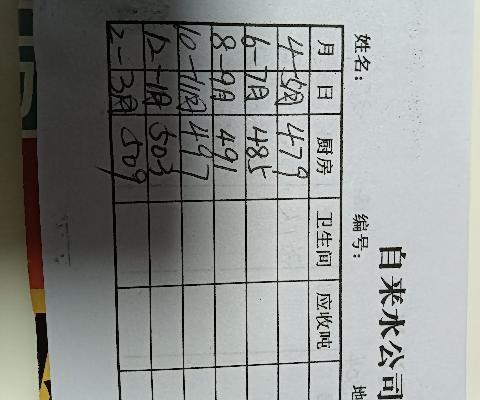 自来水公司
姓名： 编号： 地
月 日 厨房 卫生间 应收吨
4-5月 479
6-7月 485
8-9月 491
10-11月 497
12-1月 503
2-3月 509